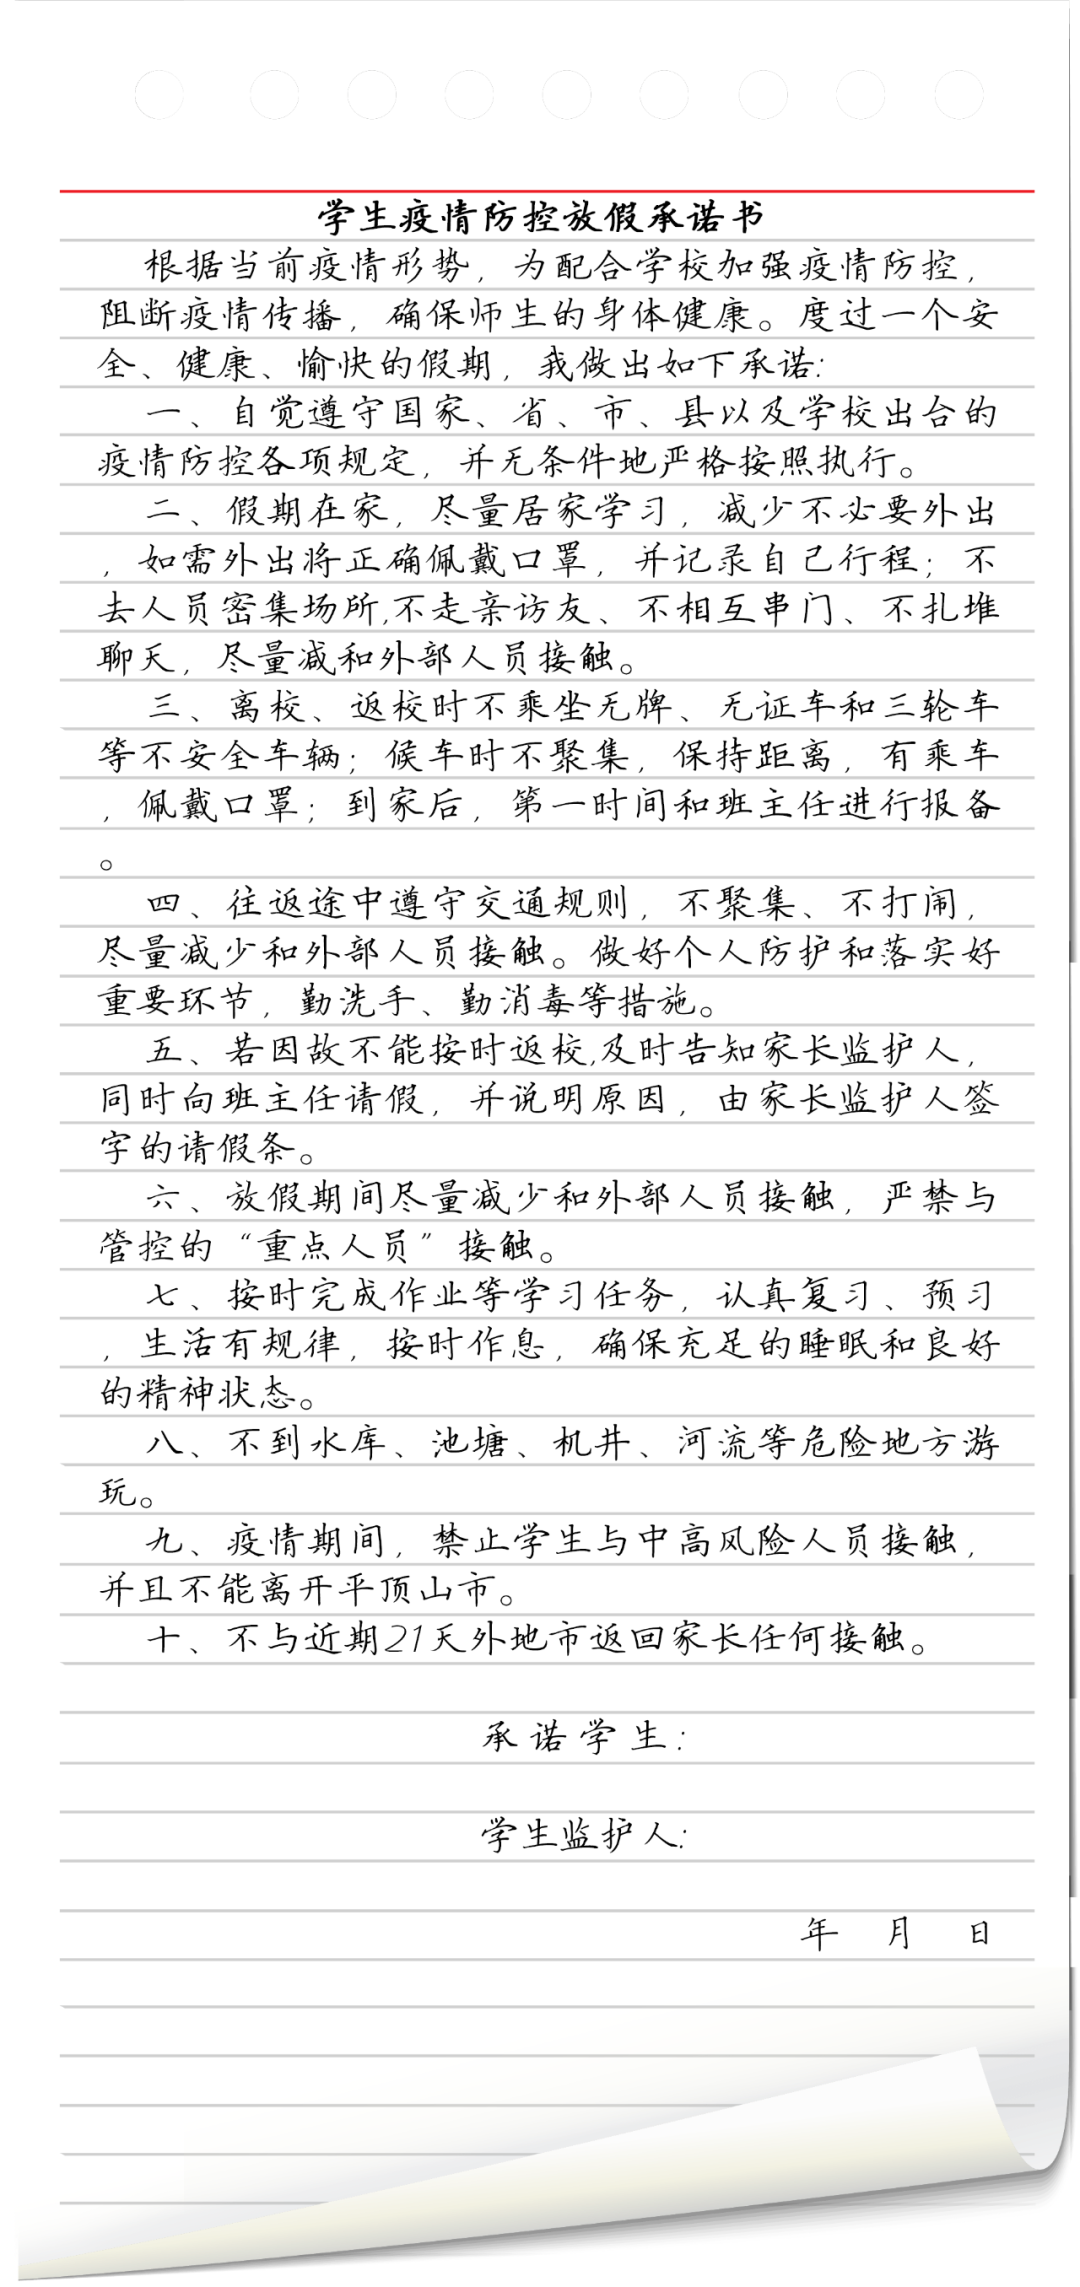 学生疫情防控放假承诺书
根据当前疫情形势，为配合学校加强疫情防控，
阻断疫情传播，确保师生的身体健康。度过一个安
全、健康、愉快的假期，我做出如下承诺：
一、自觉遵守国家、省、市、县以及学校出台的
疫情防控各项规定，并无条件地严格按照执行。
二、假期在家，尽量居家学习，减少不必要外出
，如需外出将正确佩戴口罩，并记录自己行程；不
去人员密集场所,不走亲访友、不相互串门、不扎堆
聊天，尽量减和外部人员接触。
三、离校、返校时不乘坐无牌、无证车和三轮车
等不安全车辆；候车时不聚集，保持距离，有乘车
，佩戴口罩；到家后，第一时间和班主任进行报备
。
四、往返途中遵守交通规则，不聚集、不打闹，
尽量减少和外部人员接触。做好个人防护和落实好
重要环节，勤洗手、勤消毒等措施。
五、若因故不能按时返校,及时告知家长监护人，
同时向班主任请假，并说明原因，由家长监护人签
字的请假条。
六、放假期间尽量减少和外部人员接触，严禁与
管控的“重点人员”接触。
七、按时完成作业等学习任务，认真复习、预习
，生活有规律，按时作息，确保充足的睡眠和良好
的精神状态。
八、不到水库、池塘、机井、河流等危险地方游
玩。
九、疫情期间，禁止学生与中高风险人员接触，
并且不能离开平顶山市。
十、不与近期21天外地市返回家长任何接触。
承诺学生：
学生监护人：
年 月 日